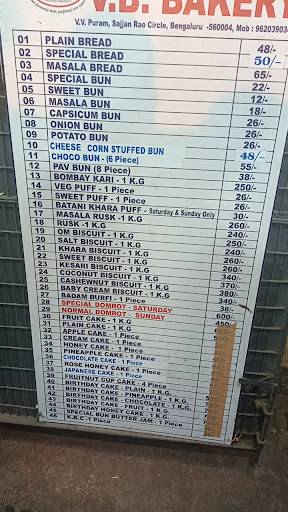 V.B. BAKERY
V.V. Puram, Sajjan Rao Circle, Bengaluru -560004, Mob : 96203903
01 PLAIN BREAD 48/-
02 SPECIAL BREAD 50/-
03 MASALA BREAD 65/-
04 SPECIAL BUN 22/-
05 SWEET BUN 12/-
06 MASALA BUN 18/-
07 CAPSICUM BUN 26/-
08 ONION BUN 26/-
09 POTATO BUN 26/-
10 CHEESE CORN STUFFED BUN 48/-
11 CHOCO BUN - (6 Piece) 55/-
12 PAV BUN (8 Piece) 38/-
13 BOMBAY KARI - 1 K.G 250/-
14 VEG PUFF - 1 Piece 26/-
15 SWEET PUFF - 1 Piece 26/-
16 BATANI KHARA PUFF - Saturday & Sunday Only 30/-
17 MASALA RUSK -1 K.G 260/-
18 RUSK -1 K.G 240/-
19 OM BISCUIT - 1 K.G 260/-
20 SALT BISCUIT - 1 K.G 250/-
21 KHARA BISCUIT - 1 K.G 260/-
22 SWEET BISCUIT - 1 K.G 260/-
23 KESARI BISCUIT - 1 K.G 340/-
24 COCONUT BISCUIT - 1 K.G 370/-
25 CASHEWNUT BISCUIT - 1 K.G 380/-
26 BABY CREAM BISCUIT - 1 K.G 340/-
27 BADAM BURFI - 1 Piece 38/-
28 SPECIAL DOMROT - SATURDAY 600/-
29 NORMAL DOMROT - SUNDAY 450/-
30 FRUIT CAKE - 1 K.G
31 PLAIN CAKE - 1 K.G
32 APPLE CAKE - 1 Piece
33 CREAM CAKE - 1 Piece
34 HONEY CAKE - 1 Piece
35 PINEAPPLE CAKE - 1 Piece
36 CHOCOLATE CAKE - 1 Piece
37 ROSE HONEY CAKE - 1 Piece
38 JAPANESE CAKE - 1 Piece
39 FRUITNUT CUP CAKE - 4 Piece
40 BIRTHDAY CAKE - PLAIN - 1 K.G
41 BIRTHDAY CAKE - PINEAPPLE - 1 K.G
42 BIRTHDAY CAKE - CHOCOLATE - 1 K.G.
43 BIRTHDAY CAKE - FRUIT - 1 K.G
44 BIRTHDAY HONEY CAKE - 1 K.G
45 SPECIAL BUN BUTTER JAM - 1 Piece
K.B.C -1 Piece